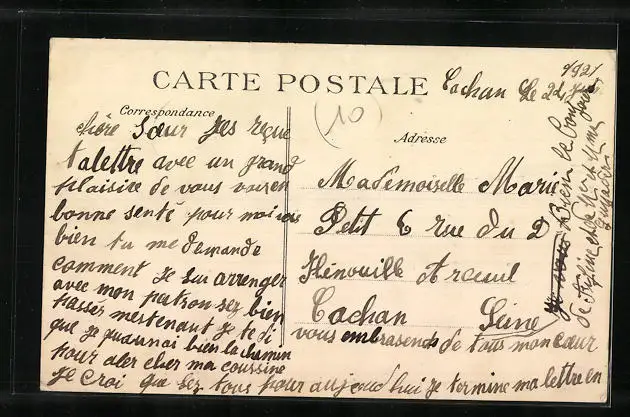 CARTE POSTALE
Cachan le 22
1921
Correspondance
(10)
Adresse
chère Sœur Jes reçue
ta lettre avec un grand
plaisire de vous voir en
bonne senté pour moi
bien tu me demande
comment Je sui arrenger
avec mon patron sez bien
passer mestenant je te di
que je quaunai bien la chemin
pour aler cher ma coussine
Je Croi que sez tous pour aujoud'hui Je termine ma lettre en
vous embrasende de tous mon cœur
Mademoiselle Marie
Petit 6 rue du D
Hénouille Arcueil
Cachan Seine
Bien le bon jour
de